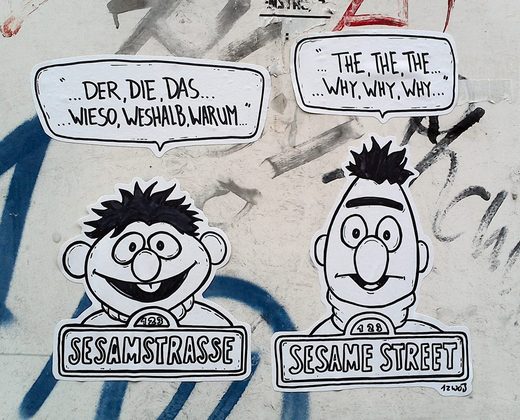 "...DER, DIE, DAS...
WIESO, WESHALB, WARUM..."
"...THE, THE, THE...
...WHY, WHY, WHY..."
123
SESAMSTRASSE
123
SESAME STREET
12WOJ